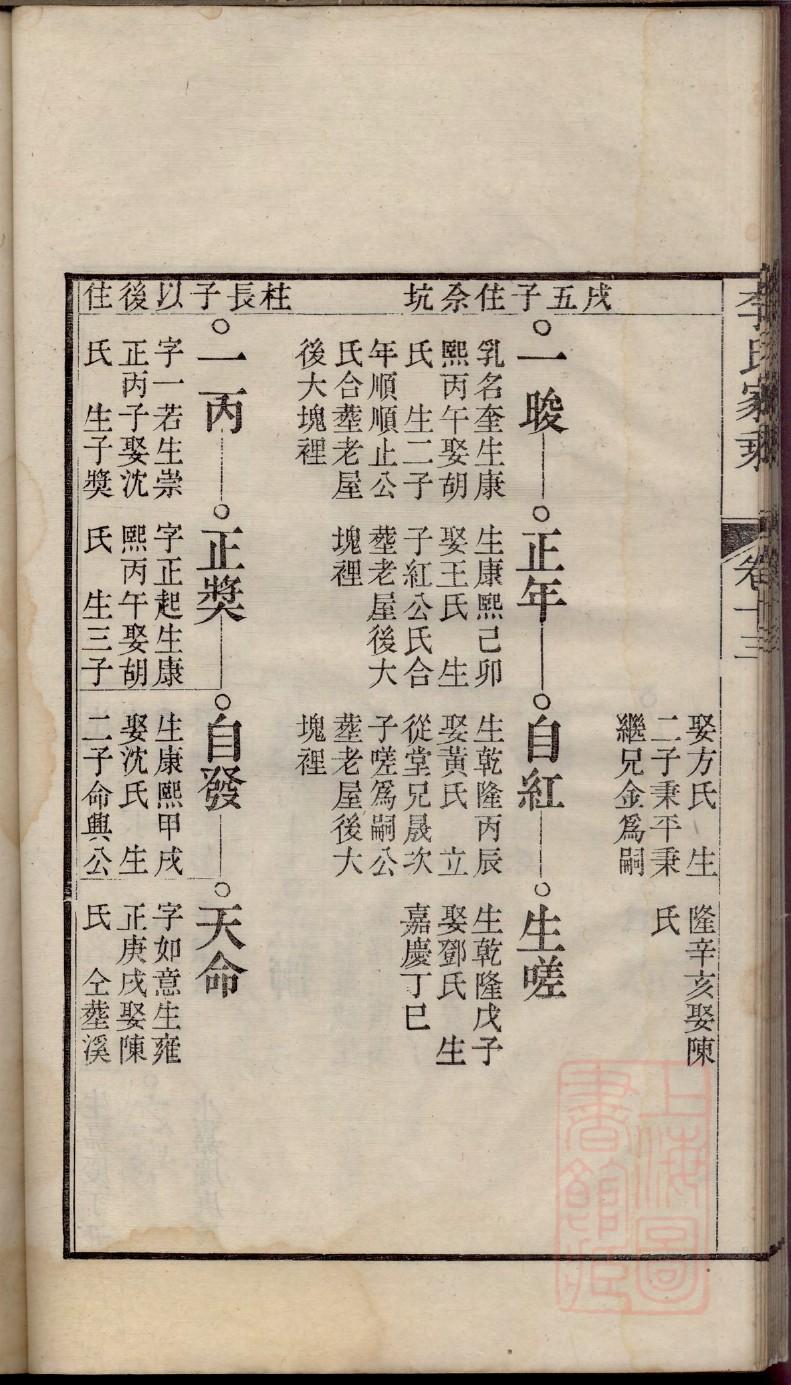 李氏家乘
卷十三
娶方氏　生
二子秉平秉
繼兄金爲嗣
隆辛亥娶陳
氏
戌五子住佘坑
一晙
乳名奎生康
熙丙午娶胡
氏　生二子
年順順止公
氏合塟老屋
後大塊裡
正年
生康熙己卯
娶王氏　生
子紅公氏合
塟老屋後大
塊裡
自紅
生乾隆丙辰
娶黃氏　立
從堂兄晟次
子嗟爲嗣公
塟老屋後大
塊裡
生嗟
生乾隆戊子
娶鄧氏　生
嘉慶丁巳
柱長子以後住
一丙
字一若生崇
正丙子娶沈
氏　生子獎
正獎
字正起生康
熙丙午娶胡
氏　生三子
自發
生康熙甲戌
娶沈氏　生
二子命興公
天命
字如意生雍
正庚戌娶陳
氏　仝塟溪
上海圖書館藏